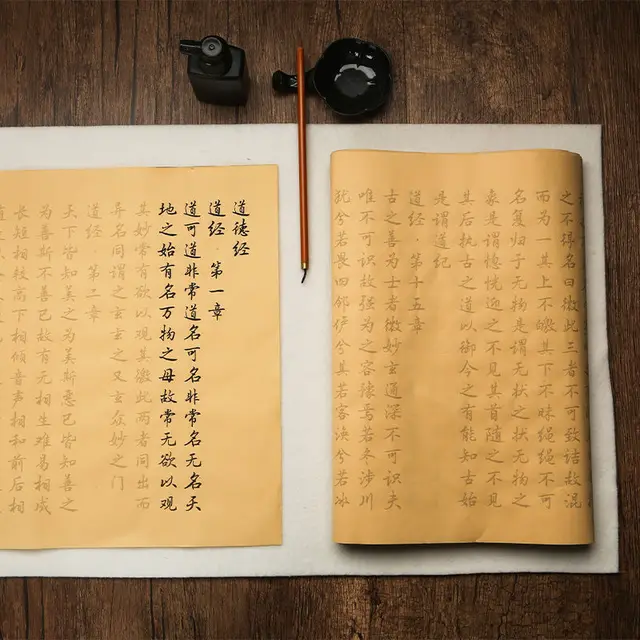 道德经
道经·第一章
道可道非常道名可名非常名无名天
地之始有名万物之母故常无欲以观
其妙常有欲以观其徼此两者同出而
异名同谓之玄玄之又玄众妙之门
道经·第二章
天下皆知美之为美斯恶已皆知善之
为善斯不善已故有无相生难易相成
长短相较高下相倾音声相和前后相
之不得名曰微此三者不可致结故混
而为一其上不皦其下不昧绳绳不可
名复归于无物是谓无状之状无物之
象是谓惚恍迎之不见其首随之不见
其后执古之道以御今之有能知古始
是谓道纪
道经·第十五章
古之善为士者微妙玄通深不可识夫
唯不可识故强为之容豫焉若冬涉川
犹兮若畏四邻俨兮其若客涣兮若冰